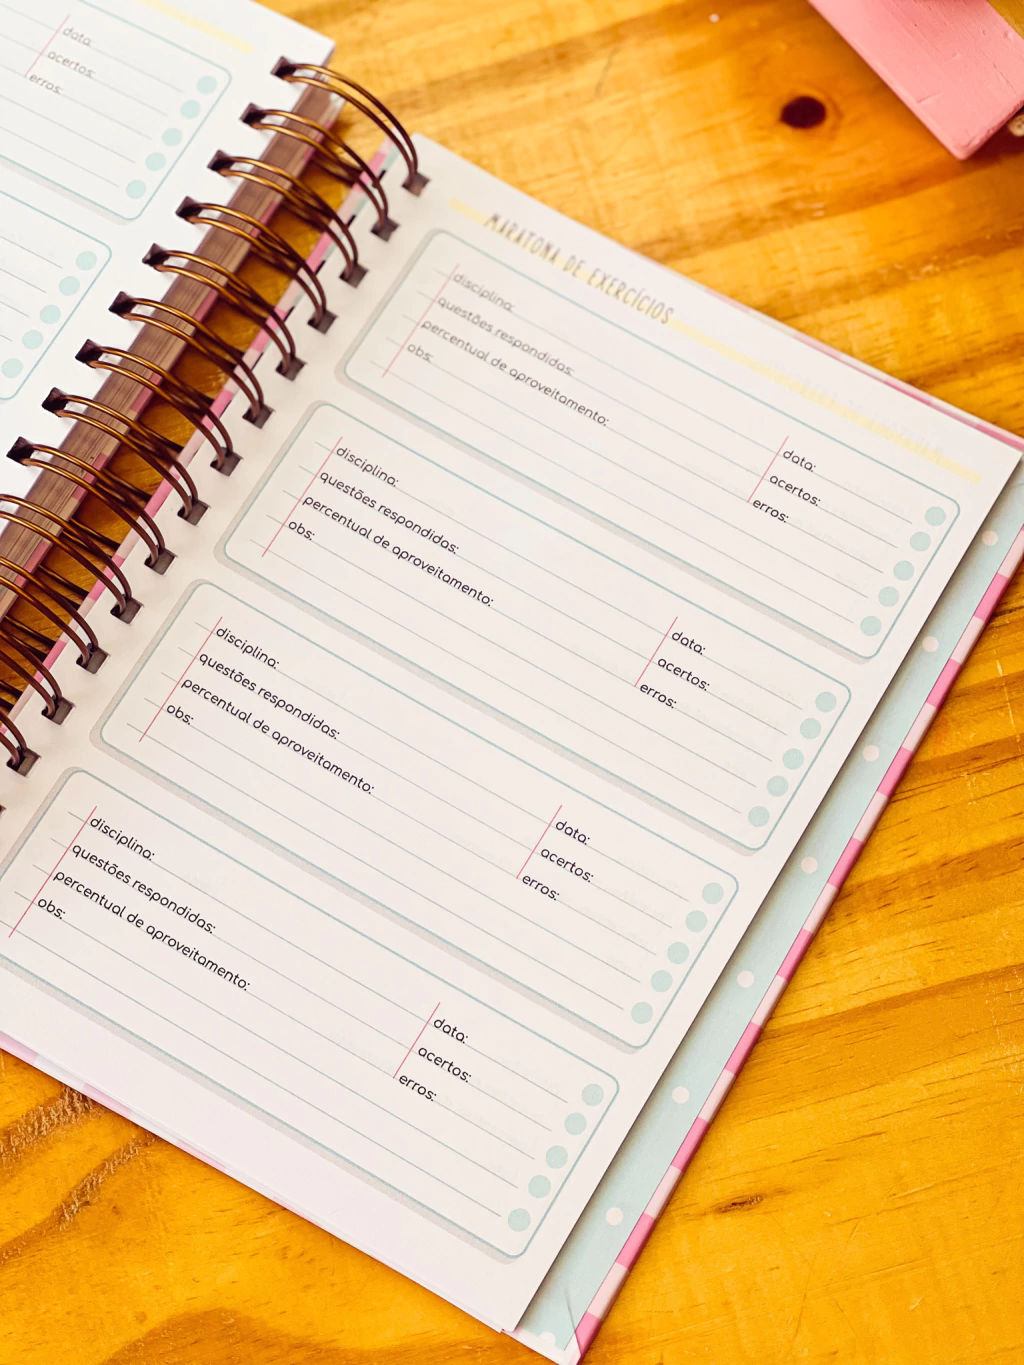 data:
acertos:
erros:
MARATONA DE EXERCÍCIOS
disciplina:
questões respondidas:
percentual de aproveitamento:
obs:
data:
acertos:
erros:
disciplina:
questões respondidas:
percentual de aproveitamento:
obs:
data:
acertos:
erros:
disciplina:
questões respondidas:
percentual de aproveitamento:
obs:
data:
acertos:
erros:
disciplina:
questões respondidas:
percentual de aproveitamento:
obs:
data:
acertos:
erros: